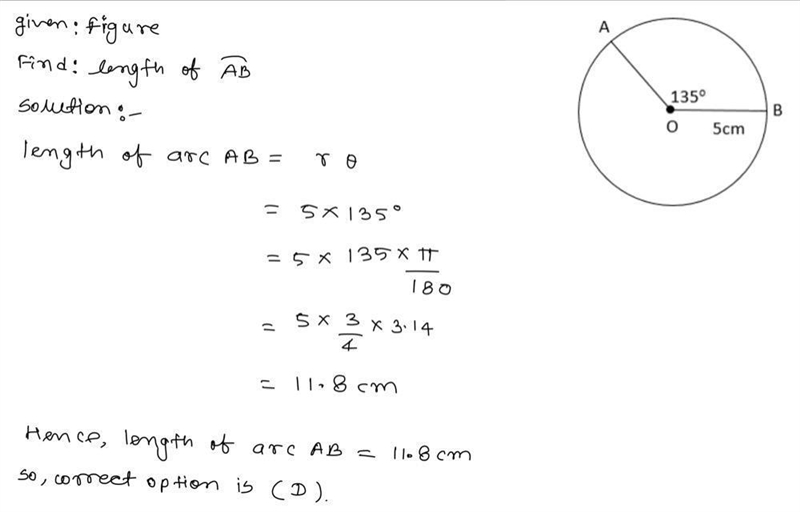 given: figure
Find: length of AB
Solution:-
length of arc AB = r θ
= 5 × 135°
= 5 × 135 × π/180
= 5 × 3/4 × 3.14
= 11.8 cm
Hence, length of arc AB = 11.8 cm
so, correct option is (D).
A
135°
B
O
5cm